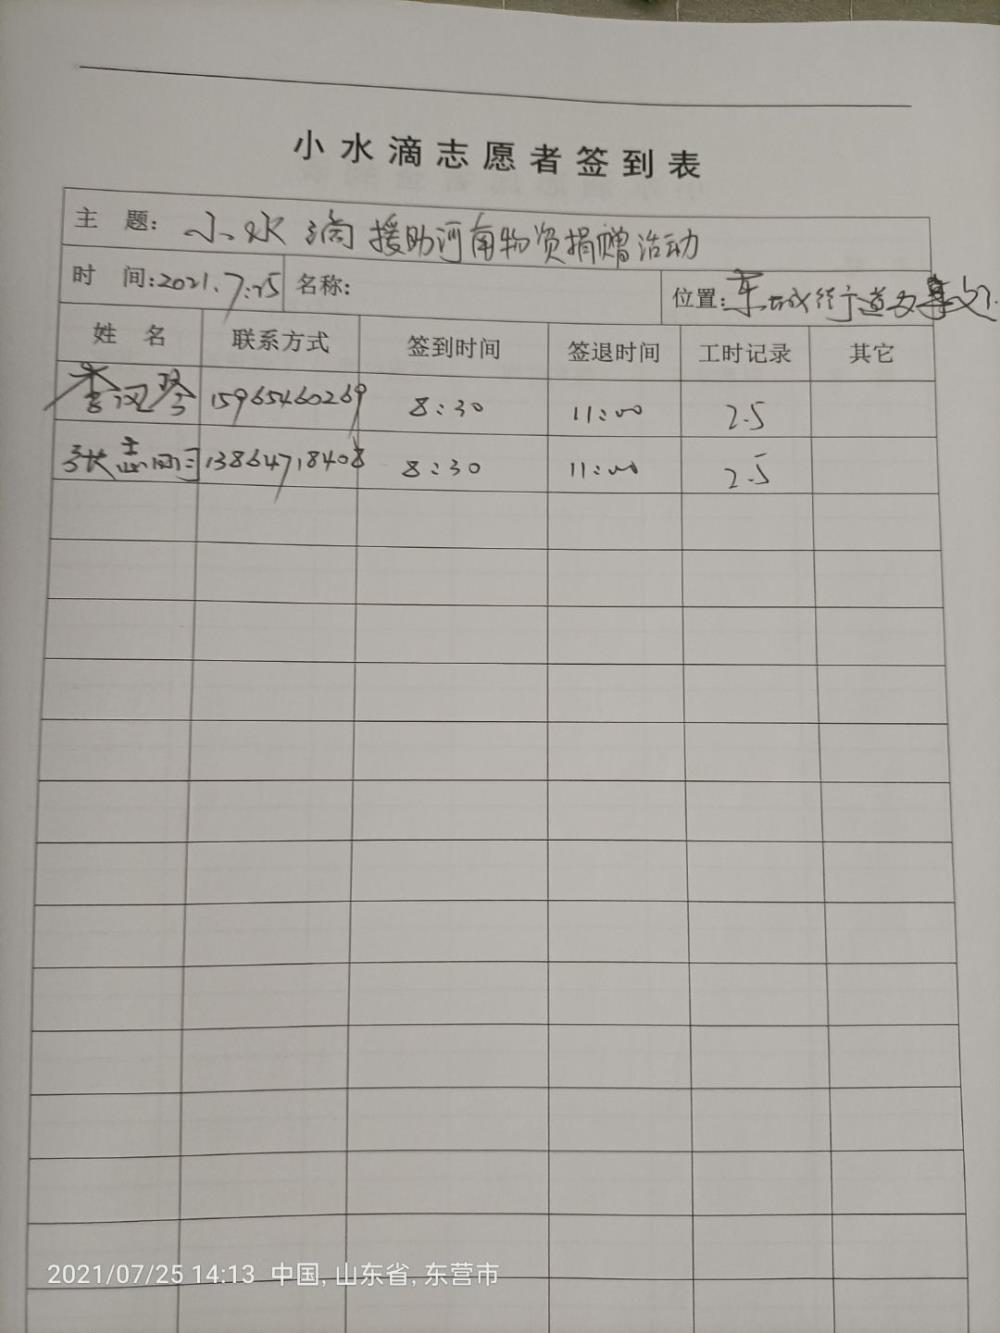 小水滴志愿者签到表
主 题: 小水滴援助河南物资捐赠活动
时 间:2021.7.25 名称: 位置:东城街道办事
姓 名 联系方式 签到时间 签退时间 工时记录 其它
李 15965460269 8:30 11:00 2.5
张志 13864718408 8:30 11:00 2.5
2021/07/25 14:13 中国, 山东省, 东营市